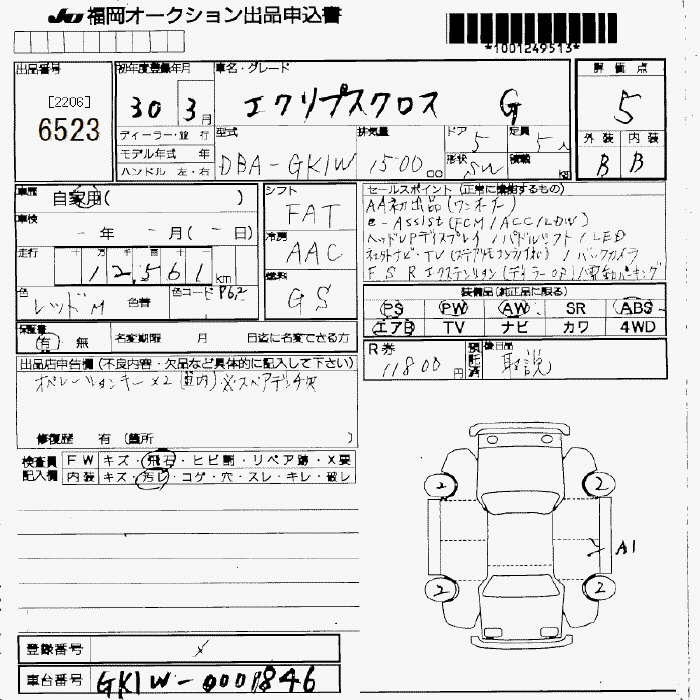 JU 福岡オークション出品申込書
*1001249513*
出品番号
[2206]
6523
初年度登録年月
30 3月
車名・グレード
エクリプスクロス G
評価点
5
外装 内装
B B
ディーラー・並行
モデル年式 年
ハンドル 左・右
型式
DBA-GK1W
排気量
1500 cc
ドア
5
形状
SW
定員
5人
積載
kg
車歴
自家用( )
車検
- 年 - 月( - 日)
走行
十 万 千 百 十 一
12,561 km
色
レッドM
色替
色コード P62
シフト
FAT
冷房
AAC
燃料
GS
セールスポイント(正常に機能するもの)
AA初出品(ワンオーナー)
e-Assist(FCM/ACC/LDW)
ヘッドUPディスプレイ/パドルシフト/LED
ナビ・TV(ステアリモコン)/バックカメラ
F S R エクステンション(ディーラーOP)/電動パーキング
装備品(純正品に限る)
PS PW AW SR ABS
エアB TV ナビ カワ 4WD
保証書
有 無
名変期限 月 日迄に名変できる方
R券
11800円
預託済
後日品
取説
出品店申告欄(不良内容・欠品など具体的に記入して下さい)
オペレーションキー×2(車内)
修復歴 有(箇所 )
検査員
記入欄
FW キズ・飛石・ヒビ割・リペア跡・X要
内装 キズ・汚レ・コゲ・穴・スレ・キレ・破レ
2 2
A1
2 2
登録番号
車台番号 GK1W-0001846